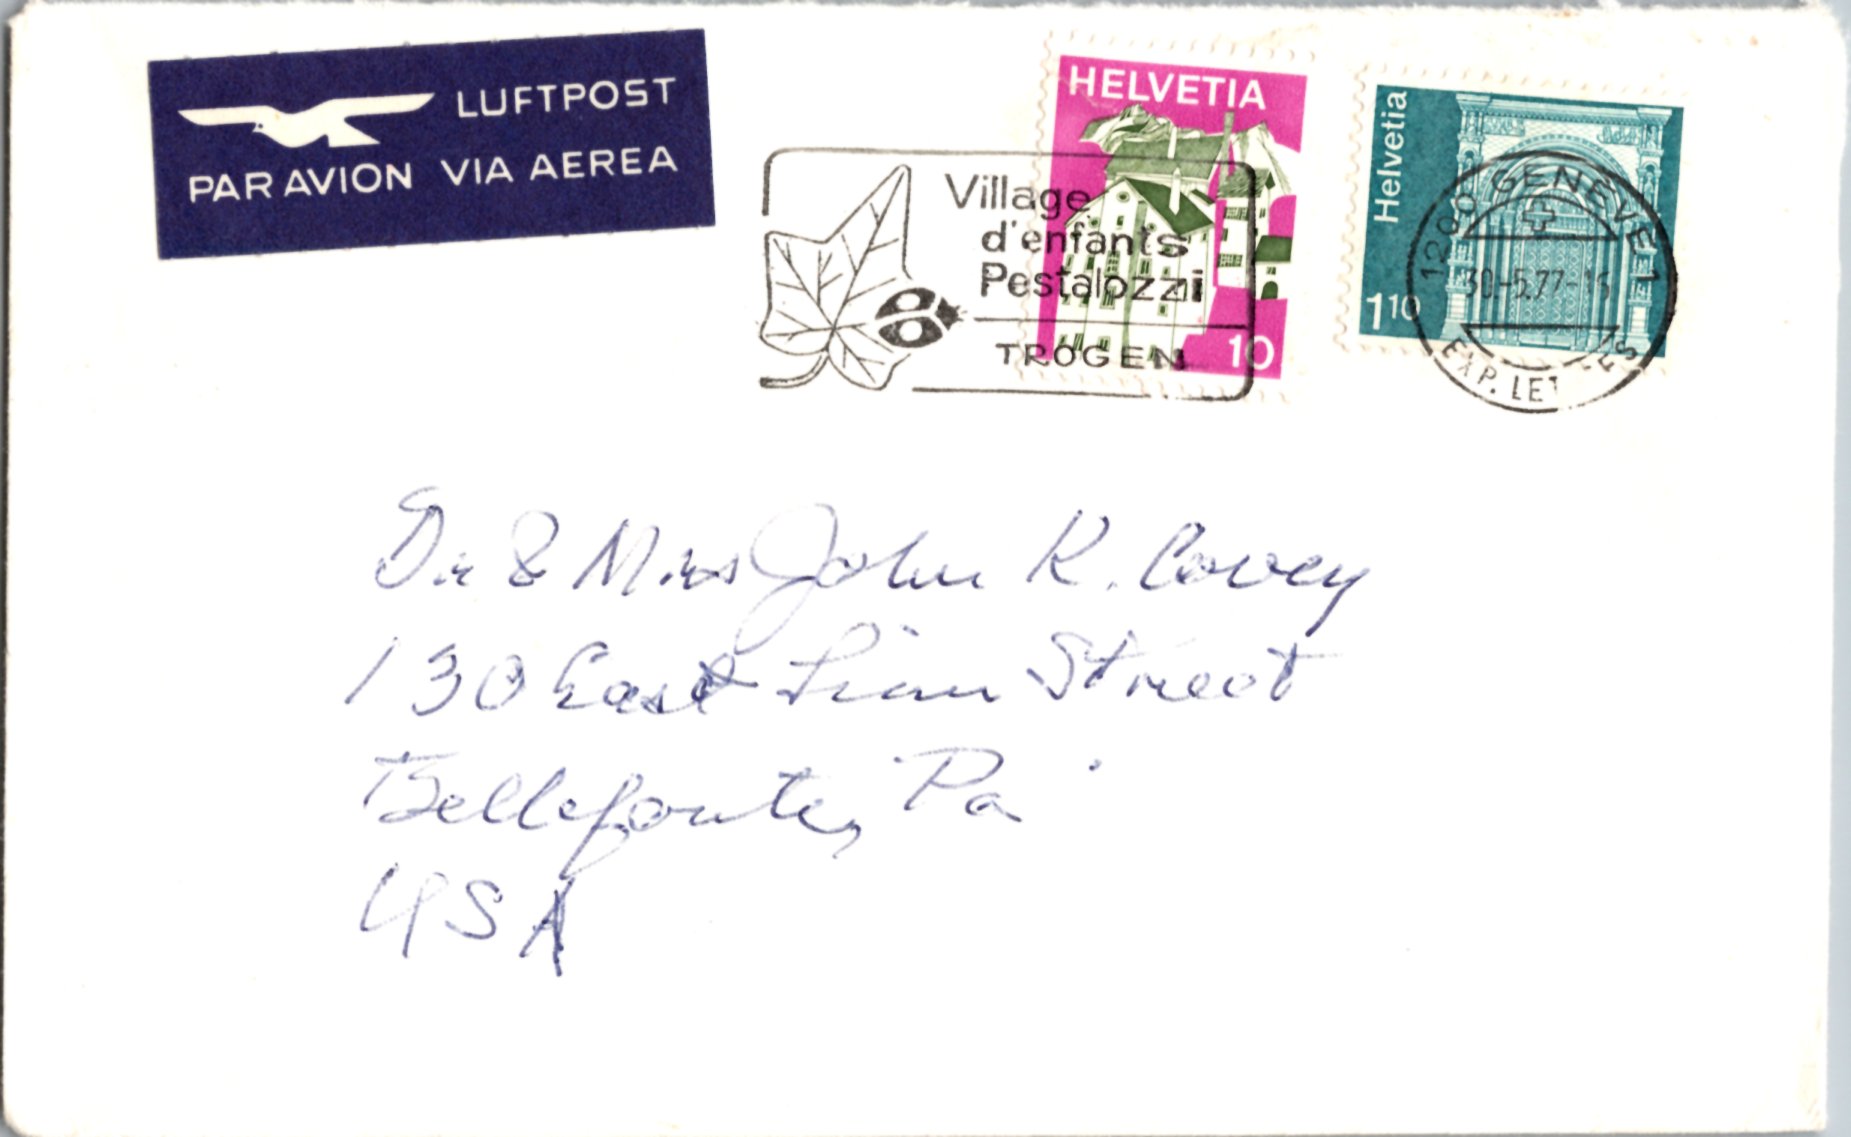 LUFTPOST
PAR AVION VIA AEREA
HELVETIA
10
Helvetia
110
Village
d'enfants
Pestalozzi
TROGEN
GENEVE 1
30.-5.77-
EXP. LET
Dr & Mrs John K. Covey
130 East Linn Street
Bellefonte, Pa
USA